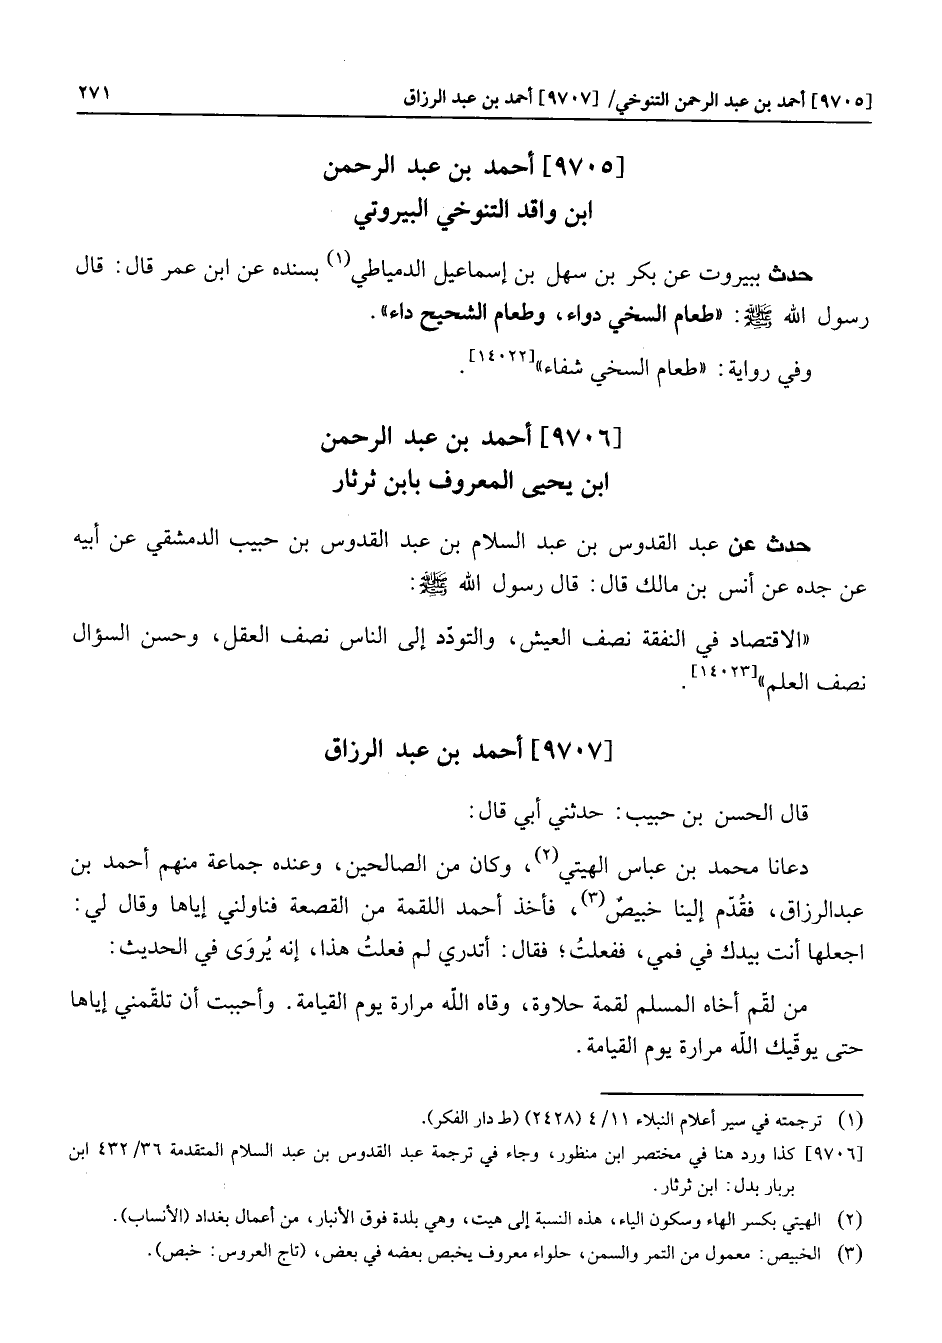 [٩٧٠٥] أحمد بن عبد الرحمن التنوخي/ [٩٧٠٧] أحمد بن عبد الرزاق ٢٧١
[٩٧٠٥] أحمد بن عبد الرحمن
ابن واقد التنوخي البيروتي
حدث ببيروت عن بكر بن سهل بن إسماعيل الدمياطي(١) بسنده عن ابن عمر قال: قال
رسول الله ﷺ: «طعام السخي دواء، وطعام الشحيح داء».
وفي رواية: «طعام السخي شفاء»[١٤٠٢٢].
[٩٧٠٦] أحمد بن عبد الرحمن
ابن يحيى المعروف بابن ثرثار
حدث عن عبد القدوس بن عبد السلام بن عبد القدوس بن حبيب الدمشقي عن أبيه
عن جده عن أنس بن مالك قال: قال رسول الله ﷺ:
«الاقتصاد في النفقة نصف العيش، والتودّد إلى الناس نصف العقل، وحسن السؤال
نصف العلم»[١٤٠٢٣].
[٩٧٠٧] أحمد بن عبد الرزاق
قال الحسن بن حبيب: حدثني أبي قال:
دعانا محمد بن عباس الهيتي(٢)، وكان من الصالحين، وعنده جماعة منهم أحمد بن
عبدالرزاق، فقُدّم إلينا خبيصٌ(٣)، فأخذ أحمد اللقمة من القصعة فناولني إياها وقال لي:
اجعلها أنت بيدك في فمي، ففعلتُ؛ فقال: أتدري لم فعلتُ هذا، إنه يُروَى في الحديث:
من لقّم أخاه المسلم لقمة حلاوة، وقاه اللّه مرارة يوم القيامة. وأحببت أن تلقّمني إياها
حتى يوقّيك اللّه مرارة يوم القيامة.
(١) ترجمته في سير أعلام النبلاء ١١/ ٤ (٢٤٢٨) (ط دار الفكر).
[٩٧٠٦] كذا ورد هنا في مختصر ابن منظور، وجاء في ترجمة عبد القدوس بن عبد السلام المتقدمة ٣٦/ ٤٣٢ ابن
بربار بدل: ابن ثرثار.
(٢) الهيتي بكسر الهاء وسكون الياء، هذه النسبة إلى هيت، وهي بلدة فوق الأنبار، من أعمال بغداد (الأنساب).
(٣) الخبيص: معمول من التمر والسمن، حلواء معروف يخبص بعضه في بعض، (تاج العروس: خبص).